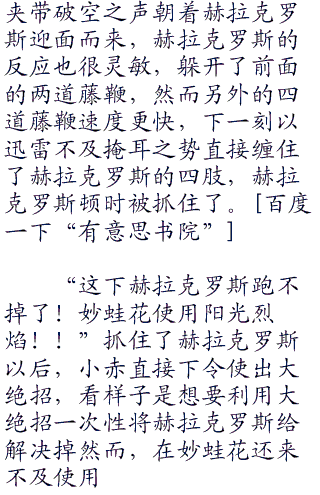 夹带破空之声朝着赫拉克罗
斯迎面而来，赫拉克罗斯的
反应也很灵敏，躲开了前面
的两道藤鞭，然而另外的四
道藤鞭速度更快，下一刻以
迅雷不及掩耳之势直接缠住
了赫拉克罗斯的四肢，赫拉
克罗斯顿时被抓住了。[百度
一下“有意思书院”]
“这下赫拉克罗斯跑不
掉了！妙蛙花使用阳光烈
焰！！”抓住了赫拉克罗斯
以后，小赤直接下令使出大
绝招，看样子是想要利用大
绝招一次性将赫拉克罗斯给
解决掉然而，在妙蛙花还来
不及使用